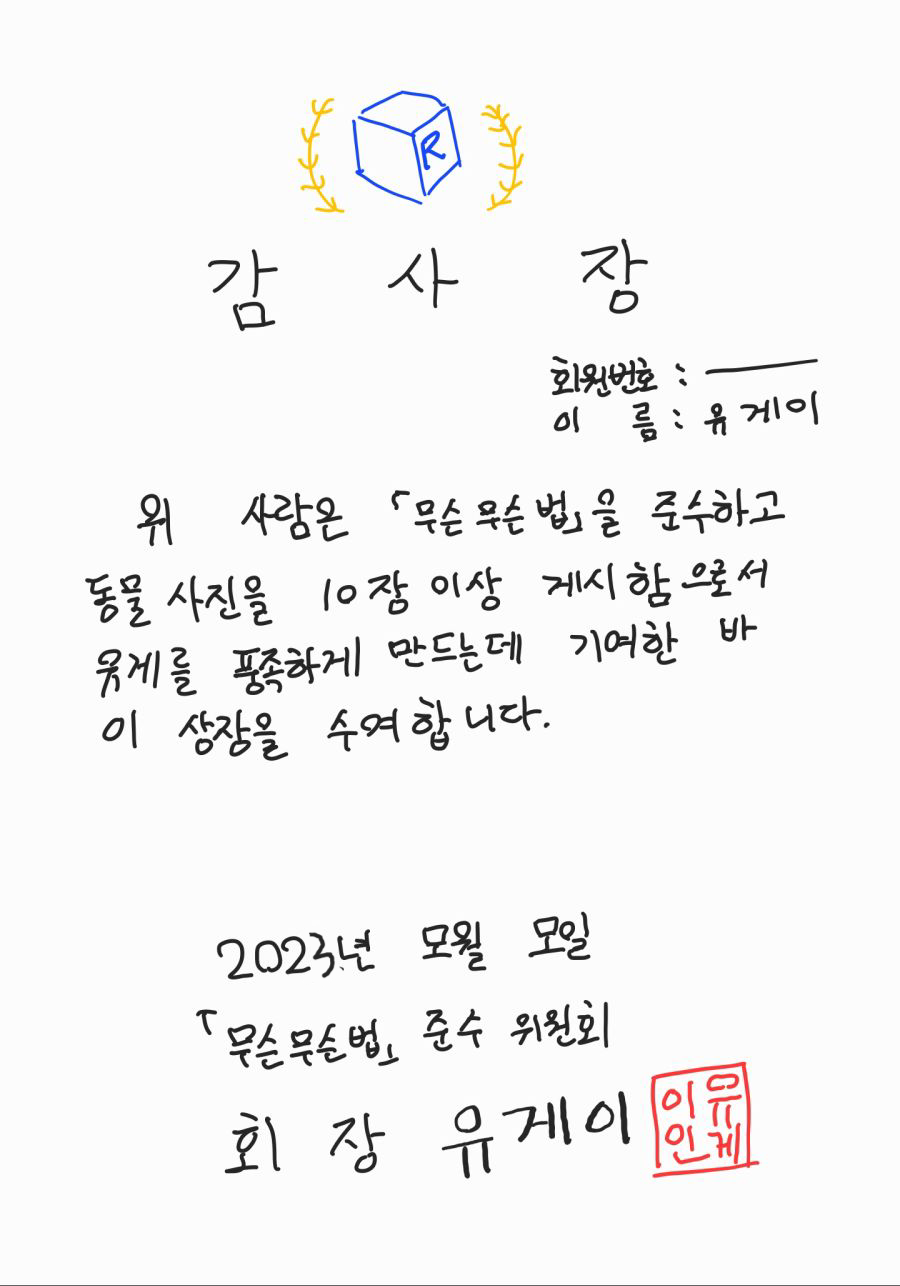 R
감 사 장
회원번호 : ―
이 름 : 유게이
위 사람은 「무슨무슨법」을 준수하고
동물 사진을 10장 이상 게시함으로서
유게를 풍족하게 만드는데 기여한 바
이 상장을 수여합니다.
2023년 모월 모일
「무슨무슨법」 준수 위원회
회 장 유게이
유게
이인